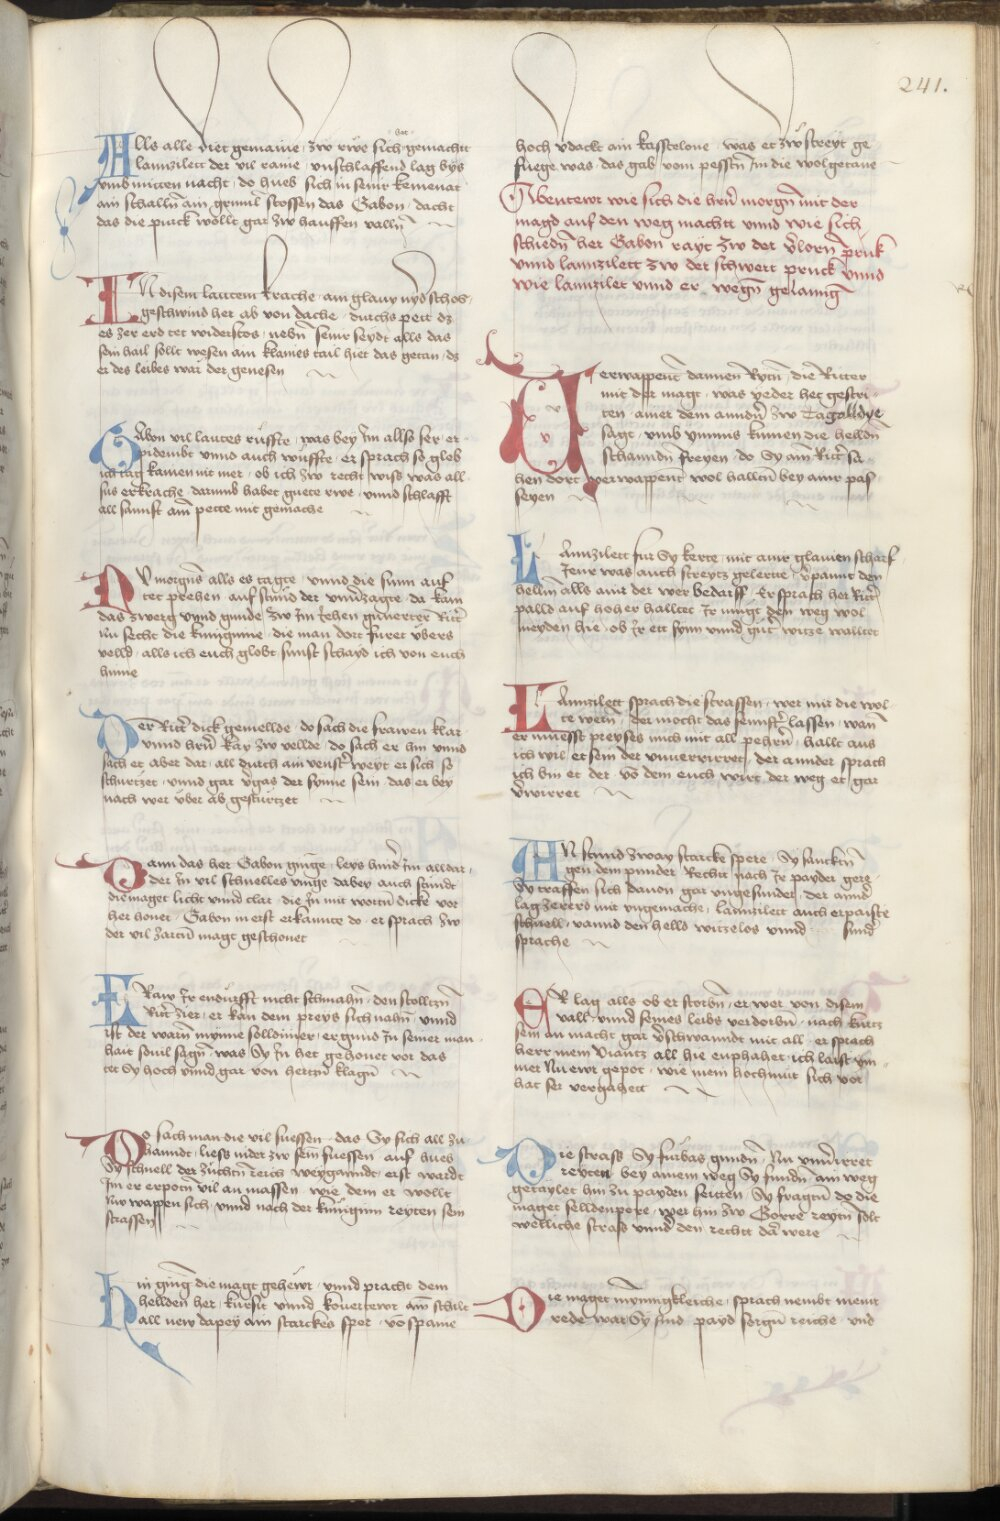 241.
Alls alle diet gemaine · zw rwe sich het gemachtt
lannzilett der vil raine · vnschlaffend lag bys
vmb mitten nacht · do hueb sich in seinr kemenat
ain schalln ain grimil stossen das Gabon · dacht
das die pruck wollt gar zw hauffen valln
In disem lautem krache · ain glauy nyd schos
geschwind her ab von dache · durchs pett dz
es zer erd tet widerstos · nebn seinr seydt alls das
sein hail sollt wesen ain klaines tail hiet das getan · dz
er des leibes war der genesen
Gabon vil lautes rüffte · was bey im allso ser er
pidembt vnnd auch wüffte · er sprach so gleb
ich tag kainen nie mer · ob ich zw recht wiss was all
sus erkrache darumb habet guete rwe · vnnd schlafft
all sannft am pette mit gemache
Des morgens alls es tagte · vnnd die sunn auf
tet prehen · auf stuend der vnuerzagte · da kam
das zwerg vnnd gunde zw im iehen gunerter Ritter
nu secht die kuniginne · die man dort füret übers
velld · alls ich euch globt sunst schayd ich von euch
hinne
Der Ritter dick gemellde · do sach die frawen klar
vnnd hern kay zw vellde · do sach er hin vnnd
sach er aber dar · all durch ain venster weyt er sich so
schurtzet · vnnd gar vergas der synne sein · das er bey
nach wer über ab gesturtzet
Dann das her Gabon ginge · leys hinder im alldar
der in vil schnelles vinge dabey auch stundt
die maget licht vnnd clar · die in mit worten dicke vor
het honet · Gabon in erst erkannte do · er sprach zw
der vil zarten magt geschonet
Fraw ir endürfft nicht schmahn · den stolltzn
Ritter zier · er kan dem preys sich nahn · vnnd
ist der warn mynne solldimer · er gund in seiner man
hait souil sagn · was Sy in het gehonet vor das
tet Sy hoch vnnd gar von hertzn klagn
Do sach man die vil suessen · das Sy sich all zu
hanndt · liess nider zw sein fuessen · auf hueb
Sy schnell der züchten reich weygandt · erst wardt
im er erpoten vil an massen · wie dem er wollt
nw wappen sich · vnnd nach der kunigin reyten sein
strassen
Hin ging die magt gehewr · vnnd pracht dem
hellden her · kursit vnnd kouertewr · ain schilt
all new dapey ain starckes sper · vo spanie
hoch vdackt ain kasstelone · was er zw streyt ge
fuege was · das gab vom pesstn im die wolgetane
Abentewr wie sich die hern morgn mit der
magd auf den weg machtt vnnd wie sich
schiedn her Gabon rayt zw der verlorn pruk
vnnd lannzilett zw der schwert pruck vnnd
wie lannzilet vnnd er wegn gelanng
Verwappent dannen Rytn · die Ritter
mit der magt · was yeder het gestri
ten · ainer dem anndern zw Tagalldye
sagt · vmb vnnns kumen die helldn
schanndn freyen · do Sy ain Ritter sa
hen dort verwappent wol hallten bey ainr pas
teyen
Lannzilett fur Sy kerte · mit ainr glauien scharf
Jener was auch streytz gelerte · verpannt den
hellm alls ainr der wer bedarff · Er sprach her Ritter
palld auf hoher halltet Ir mügt den weg wol
meyden hie · ob ir ett synn vnnd guter witze walltet
Lannzilett sprach die strassen · wer mir die wol
te wern · der mocht das sennfter lassen · wann
er muesst preyses mich mit all pehern · hallt aus
ich wil er sein der vnuerirret · der annder sprach
ich bin er der vo dem euch wirt der weg er gar
verwirret
An stund zway starcke spere · Sy sanckten
gen dem punder Recht nach ir payder gere
Sy traffen sich dauon gar vngesunder · der annder
lag zererd mit vngemache · lannzilett auch erpaiste
schnell · vannd den helld witzelos vnnd sunder
sprache
Er lag alls ob er storbn · er wer von disem
vall · vnnd seines leibs verdorbn · nach kurtz
sein an macht gar verschwanndt mit all · er sprach
herr mein viantz all hie enphahet · ich laist ym
mer nu ewr gepot · wie mein hochmut sich vor
hat ser vergahett
Die strass Sy furbas gundn · Nu vnuerirret
reyten bey ainem weg Sy fundn · ain weg
getaylet hin zu payden seitten · Sy fragten do die
maget selldenpere · wer hin zw Gorre reyten solt
welliche strass vnnder den rechtt dar were
Die maget mynnigkleiche · sprach nembt meinr
rede war Sy sind payd sorgn reiche · vnd